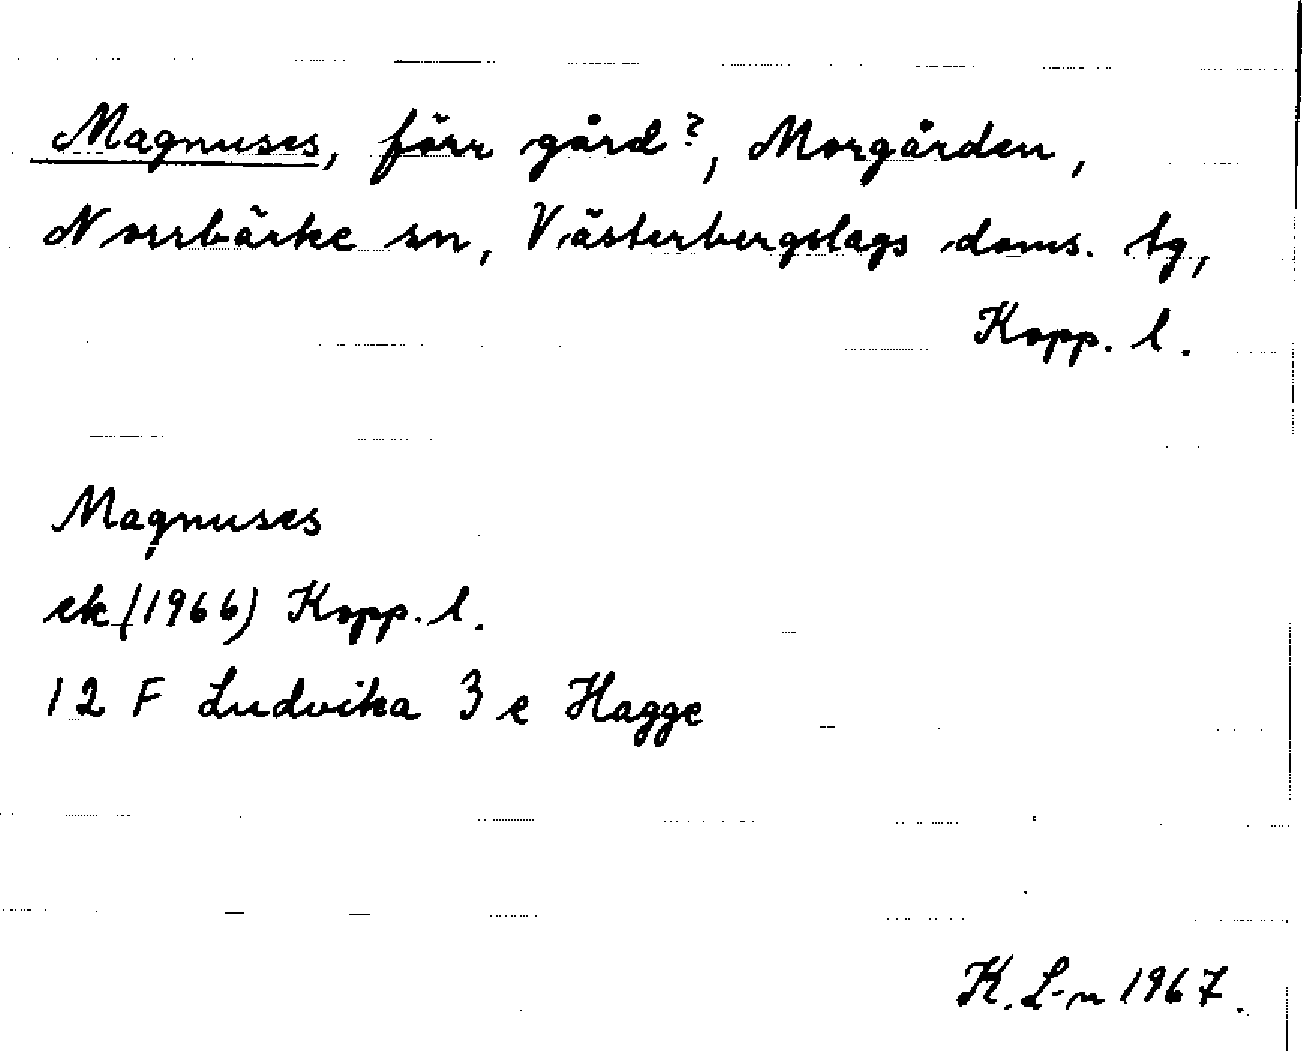 Magnuses, förr gård?, Morgården,
Norrbärke sn, Västerbergslags doms. tg,
Kopp. l.
Magnuses
ek (1966) Kopp. l.
12 F Ludvika 3 e Hagge
K. L-n 1967.